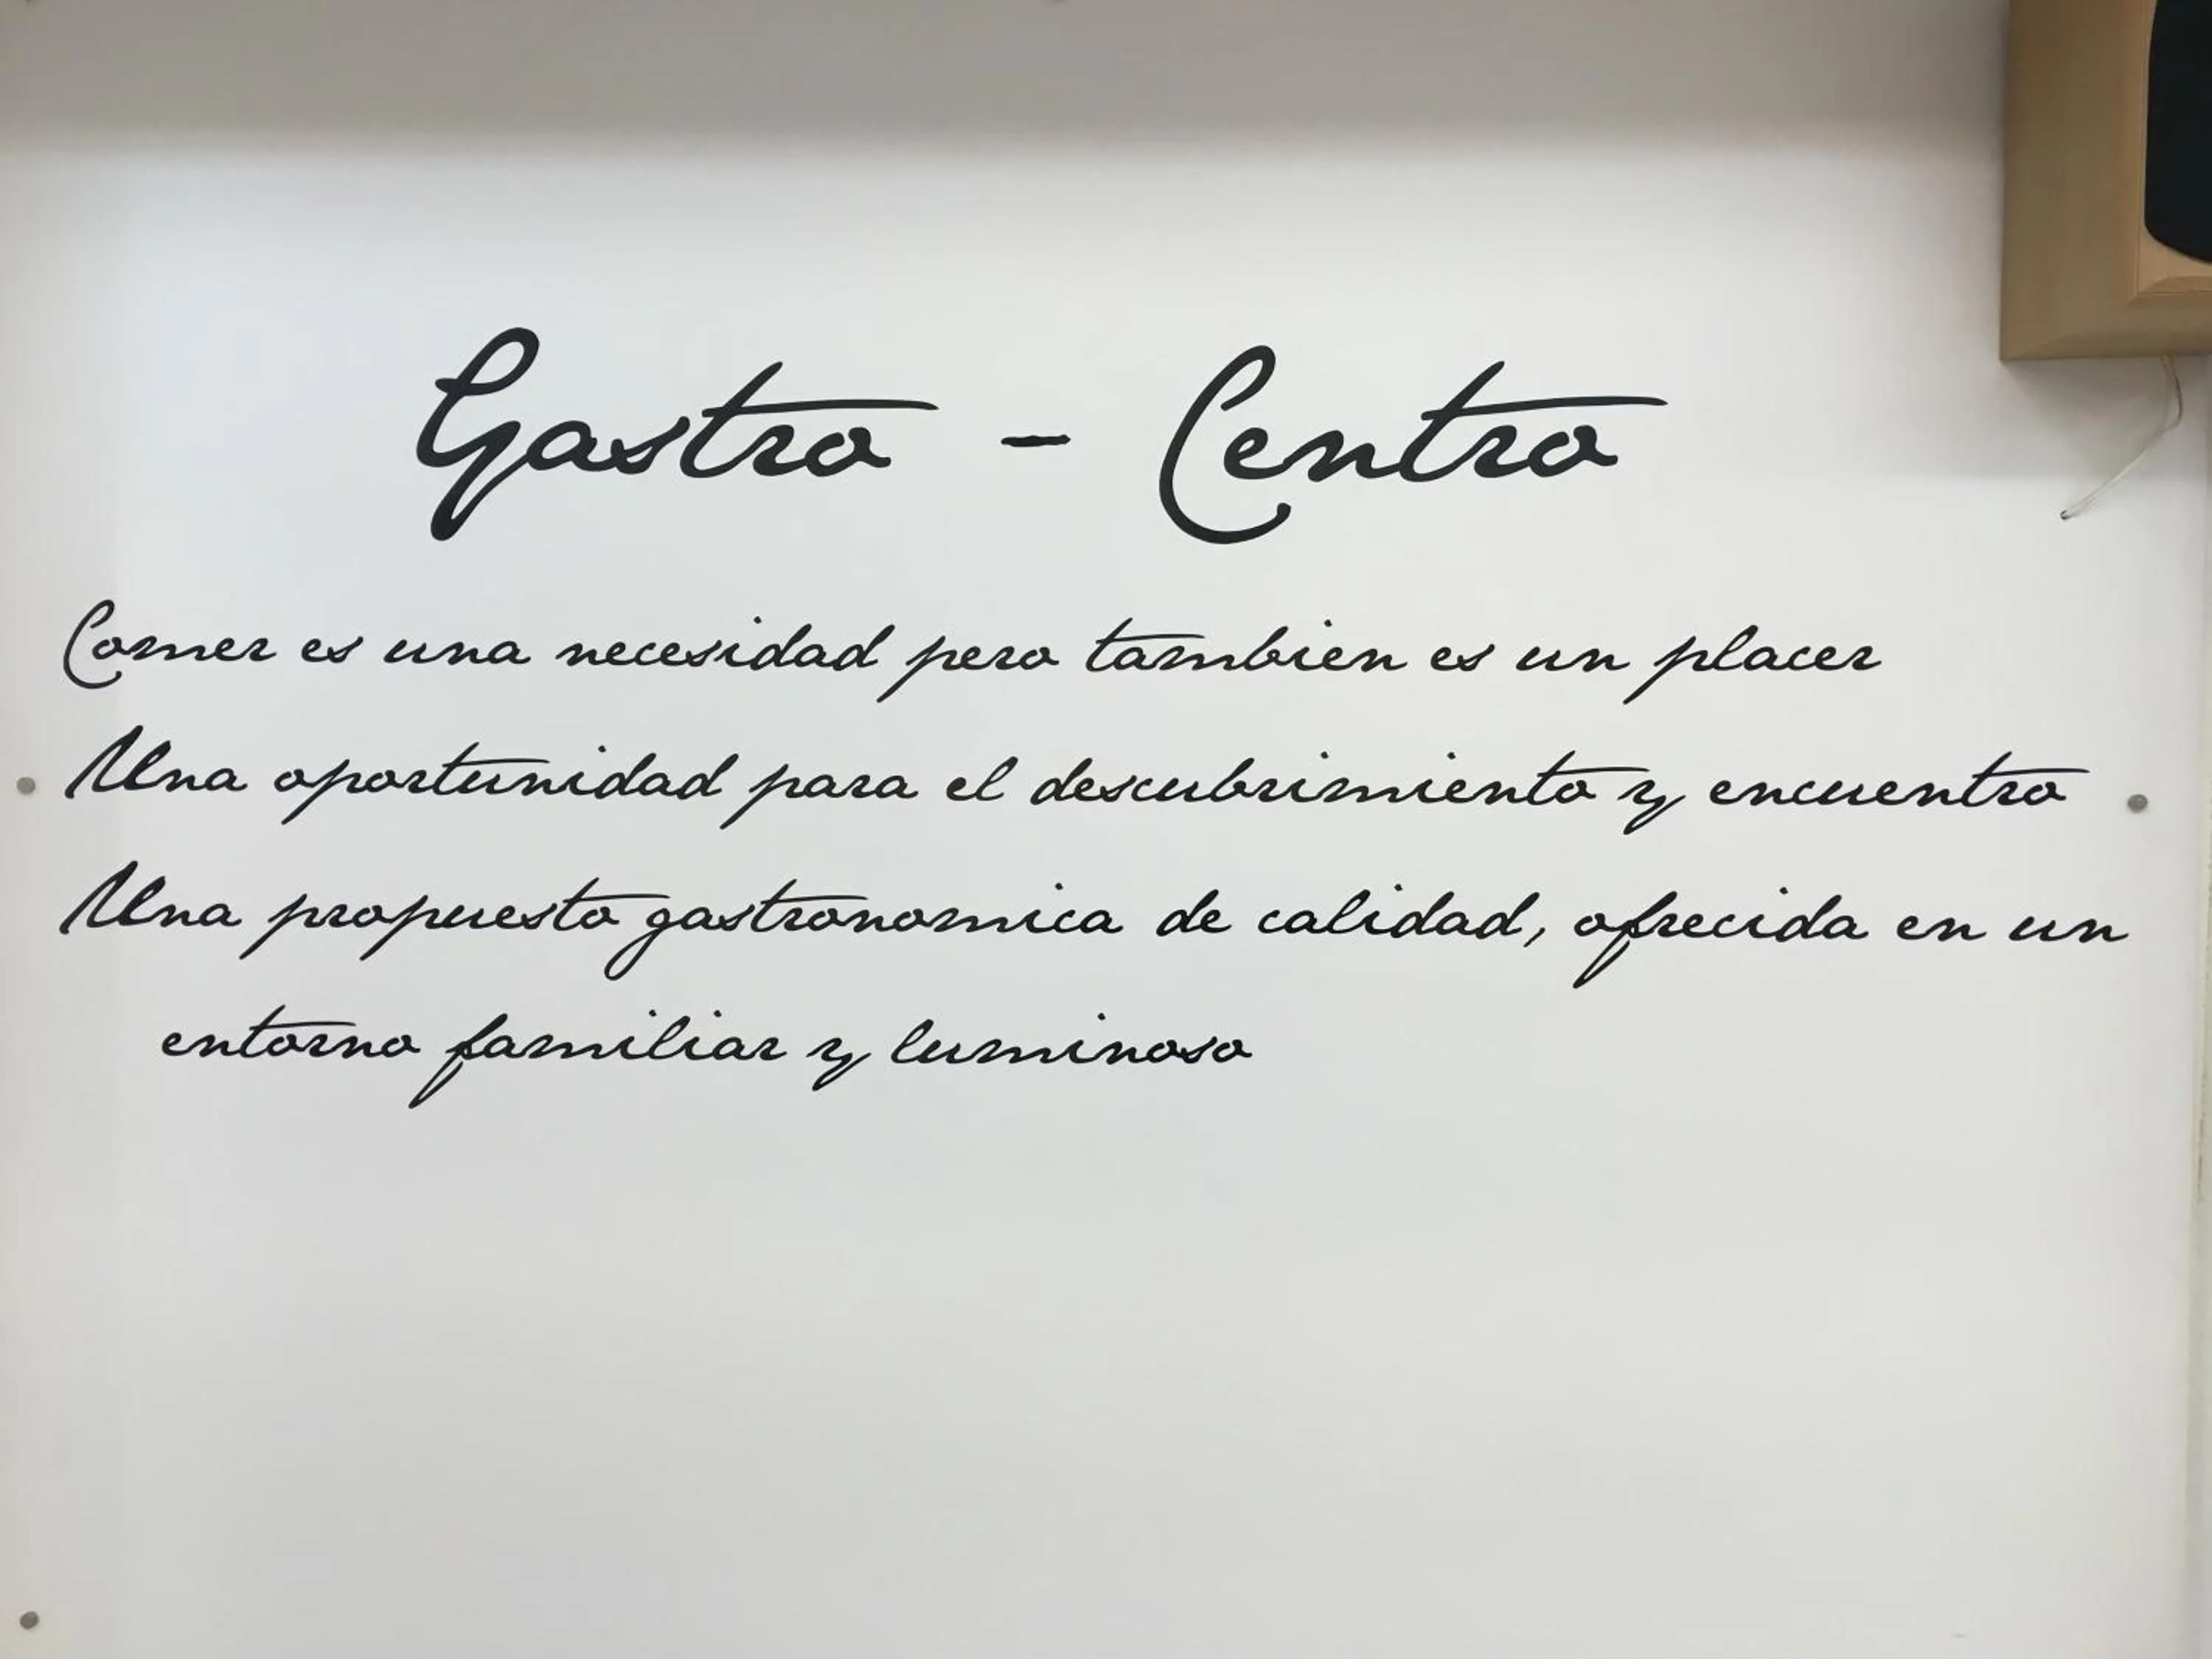 Gastro - Centro
Comer es una necesidad pero tambien es un placer
Una oportunidad para el descubrimiento y encuentro
Una propuesta gastronomica de calidad, ofrecida en un
entorno familiar y luminoso